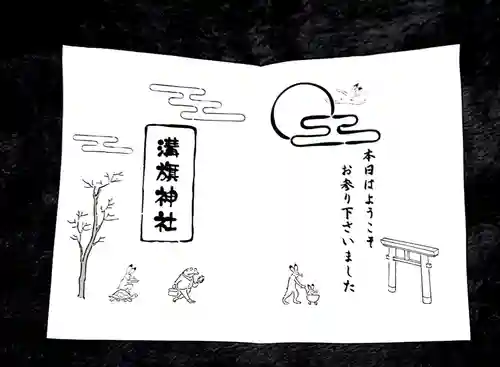 本日はようこそ
お参り下さいました
溝旗神社